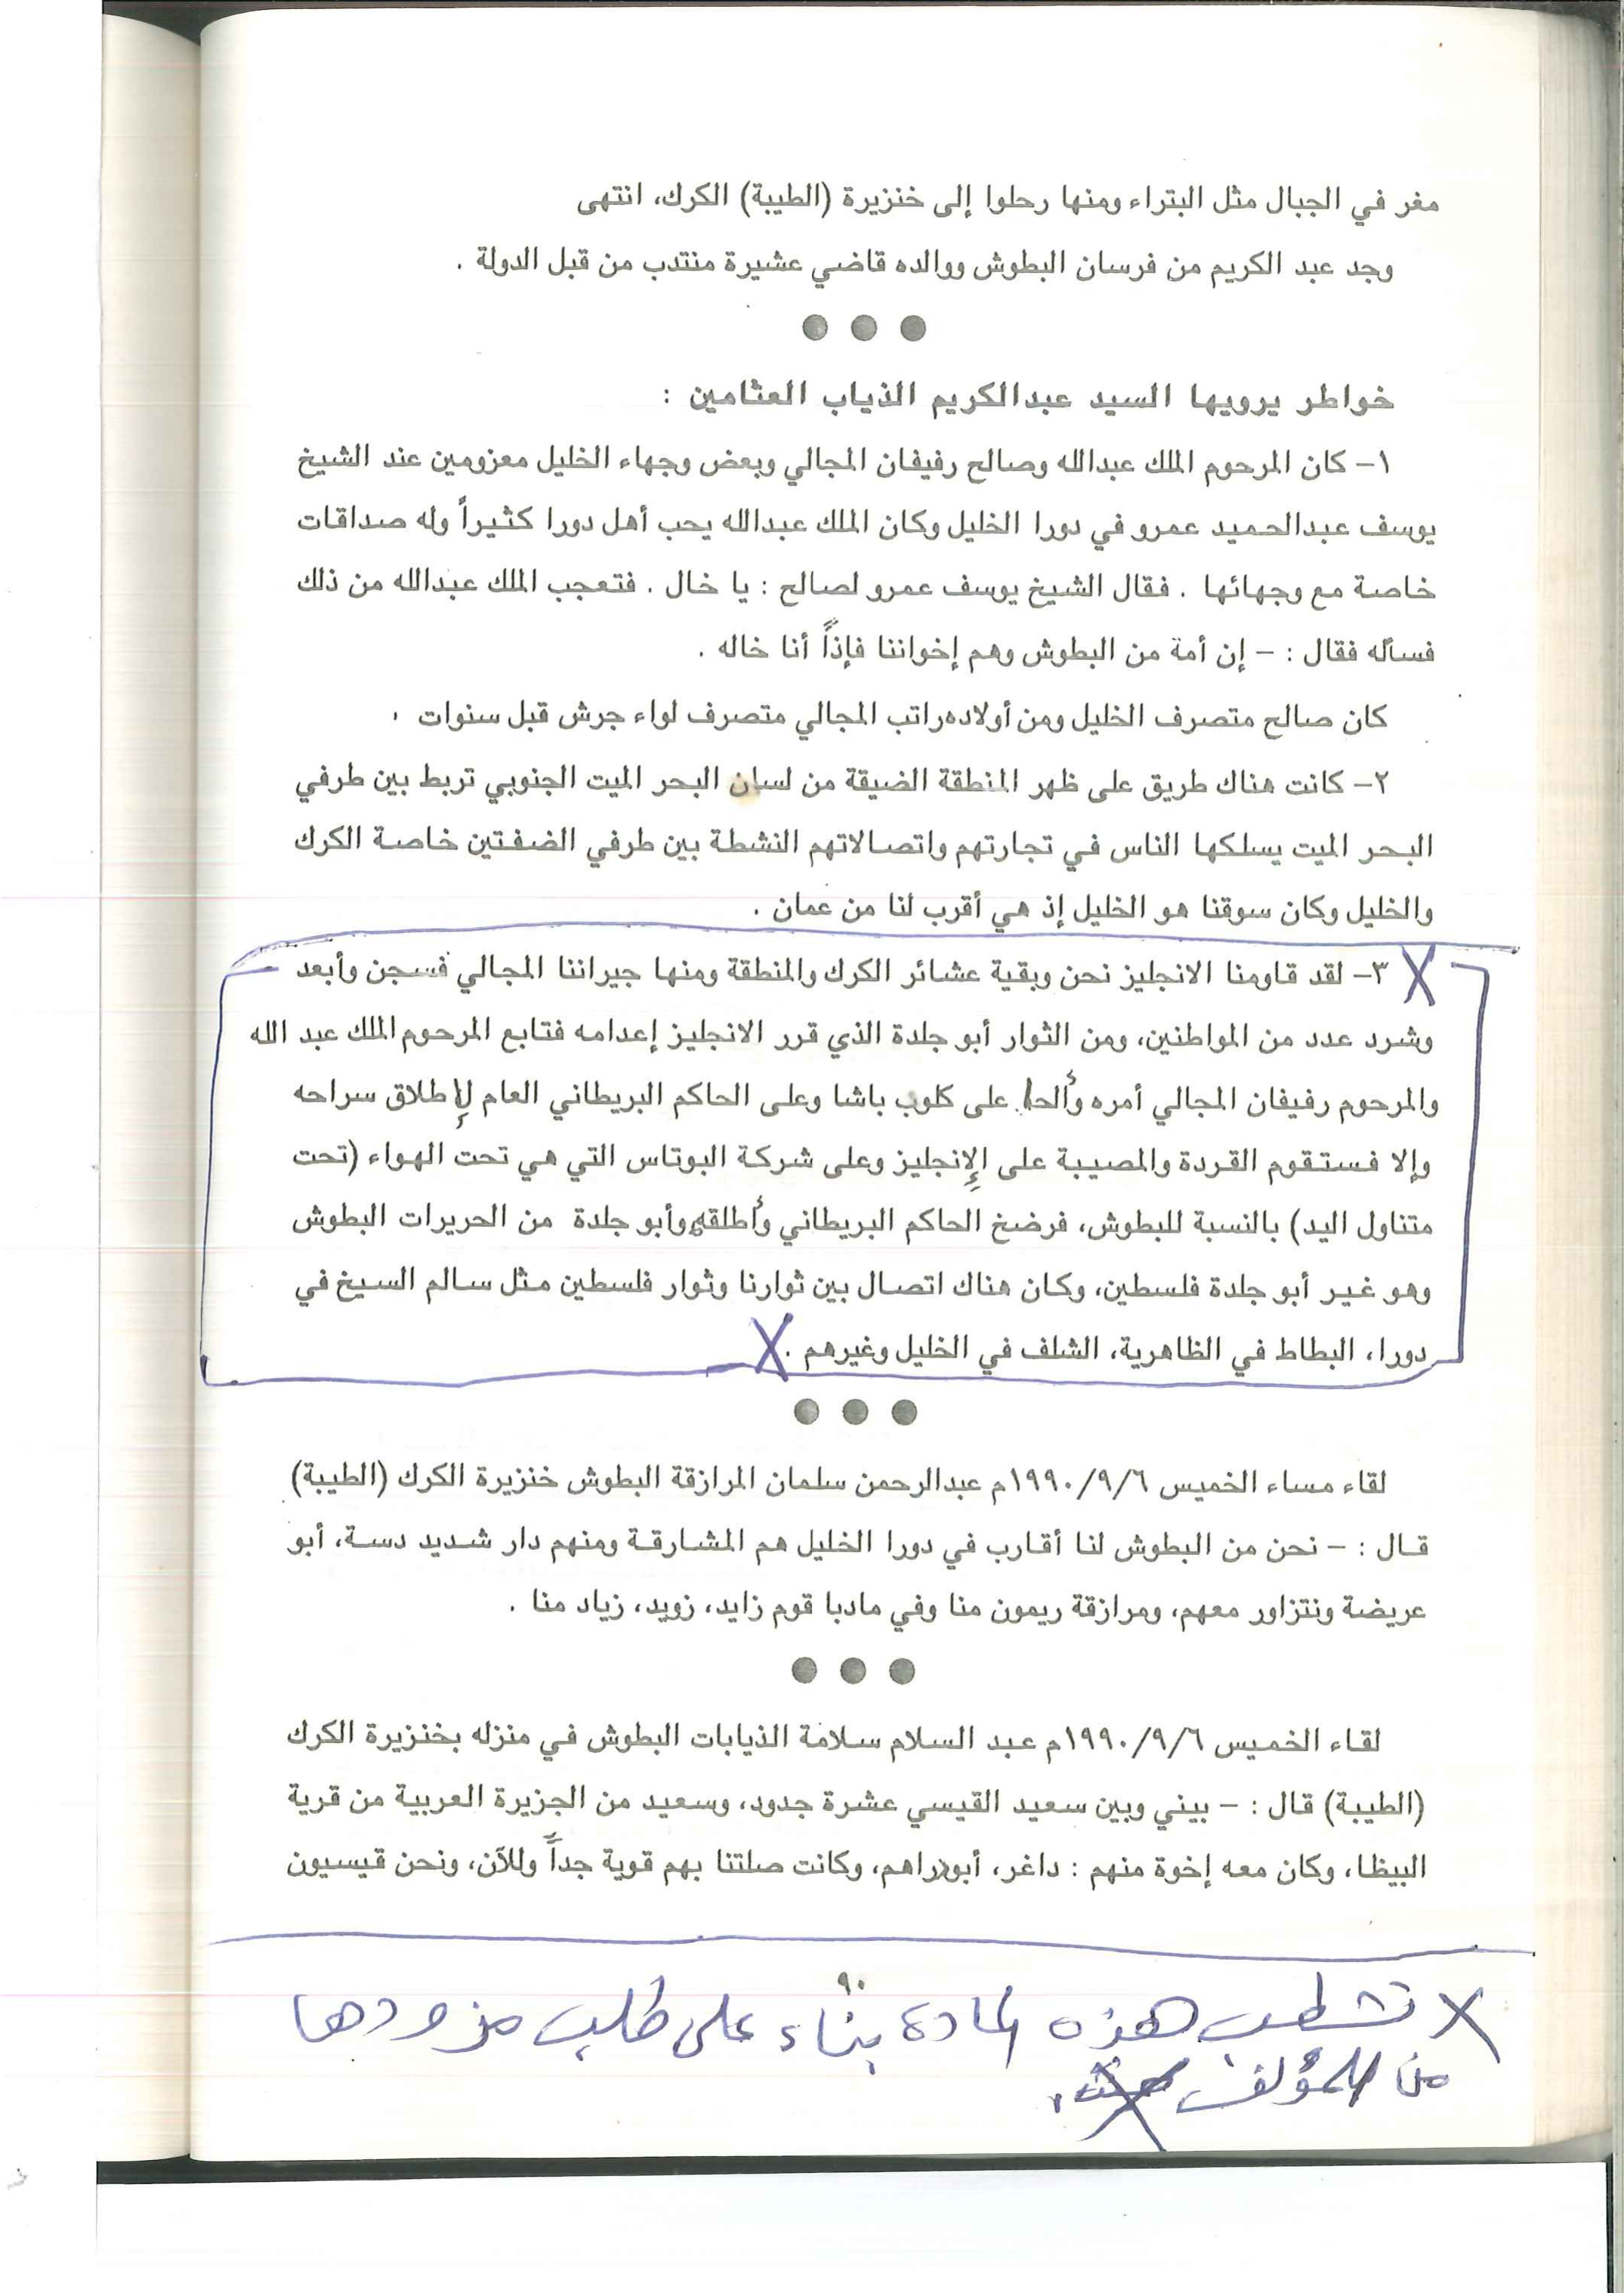 مغر في الجبال مثل البتراء ومنها رحلوا إلى خنزيرة (الطيبة) الكرك، انتهى
وجد عبد الكريم من فرسان البطوش ووالده قاضي عشيرة منتدب من قبل الدولة .
خواطر يرويها السيد عبدالكريم الذياب العثامين :
١- كان المرحوم الملك عبدالله وصالح رفيفان المجالي وبعض وجهاء الخليل معزومين عند الشيخ
يوسف عبدالحميد عمرو في دورا الخليل وكان الملك عبدالله يحب أهل دورا كثيراً وله صداقات
خاصة مع وجهائها . فقال الشيخ يوسف عمرو لصالح : يا خال . فتعجب الملك عبدالله من ذلك
فسأله فقال : - إن أمة من البطوش وهم إخواننا فإذاً أنا خاله .
كان صالح متصرف الخليل ومن أولاده راتب المجالي متصرف لواء جرش قبل سنوات .
٢- كانت هناك طريق على ظهر المنطقة الضيقة من لسان البحر الميت الجنوبي تربط بين طرفي
البحر الميت يسلكها الناس في تجارتهم واتصالاتهم النشطة بين طرفي الضفتين خاصة الكرك
والخليل وكان سوقنا هو الخليل إذ هي أقرب لنا من عمان .
X ٣- لقد قاومنا الانجليز نحن وبقية عشائر الكرك والمنطقة ومنها جيراننا المجالي فسجن وأبعد
وشرد عدد من المواطنين، ومن الثوار أبو جلدة الذي قرر الانجليز إعدامه فتابع المرحوم الملك عبد الله
والمرحوم رفيفان المجالي أمره وألحا على كلوب باشا وعلى الحاكم البريطاني العام لإطلاق سراحه
وإلا فستقوم القردة والمصيبة على الإنجليز وعلى شركة البوتاس التي هي تحت الهواء (تحت
متناول اليد) بالنسبة للبطوش، فرضخ الحاكم البريطاني وأطلقه وأبو جلدة من الحريرات البطوش
وهو غير أبو جلدة فلسطين، وكان هناك اتصال بين ثوارنا وثوار فلسطين مثل سالم السيخ في
دورا، البطاط في الظاهرية، الشلف في الخليل وغيرهم . X
لقاء مساء الخميس ١٩٩٠/٩/٦م عبدالرحمن سلمان المرازقة البطوش خنزيرة الكرك (الطيبة)
قال : - نحن من البطوش لنا أقارب في دورا الخليل هم المشارقة ومنهم دار شديد دسة، أبو
عريضة ونتزاور معهم، ومرازقة ريمون منا وفي مادبا قوم زايد، زويد، زياد منا .
لقاء الخميس ١٩٩٠/٩/٦م عبد السلام سلامة الذيابات البطوش في منزله بخنزيرة الكرك
(الطيبة) قال : - بيني وبين سعيد القيسي عشرة جدود، وسعيد من الجزيرة العربية من قرية
البيظا، وكان معه إخوة منهم : داغر، أبوراهم، وكانت صلتنا بهم قوية جداً وللآن، ونحن قيسيون
٩٠
X تشطب هذه المادة بناء على طلب مزودها
من المؤلف